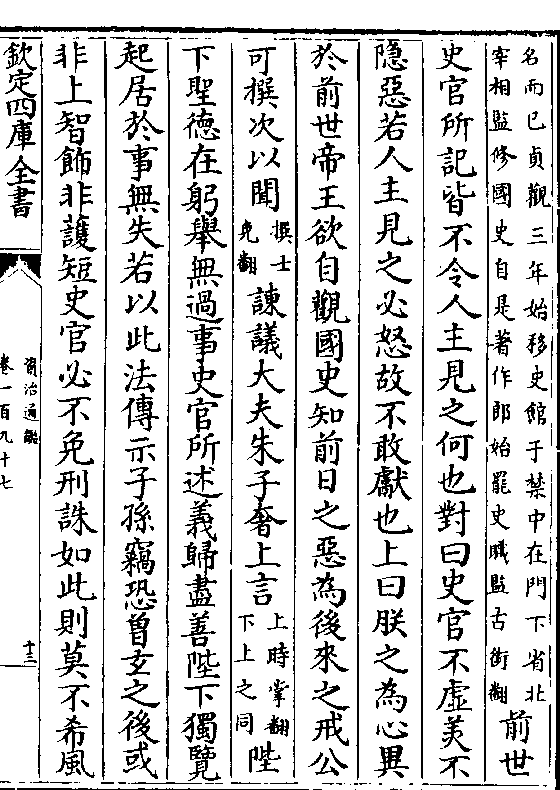 名而已貞觀三年始移史館于禁中在門下省北
宰相監修國史自是著作郎始罷史職監古銜翻
前世
史官所記皆不令人主見之何也對曰史官不虛美不
隱惡若人主見之必怒故不敢獻也上曰朕之為心異
於前世帝王欲自觀國史知前日之惡為後來之戒公
可撰次以聞
撰士
免翻
諫議大夫朱子奢上言
上時掌翻
下上之同
陛
下聖德在躬舉無過事史官所述義歸盡善陛下獨覽
起居於事無失若以此法傳示子孫竊恐曾玄之後或
非上智飾非護短史官必不免刑誅如此則莫不希風
欽定四庫全書
資治通鑑
卷一百九十七
十三